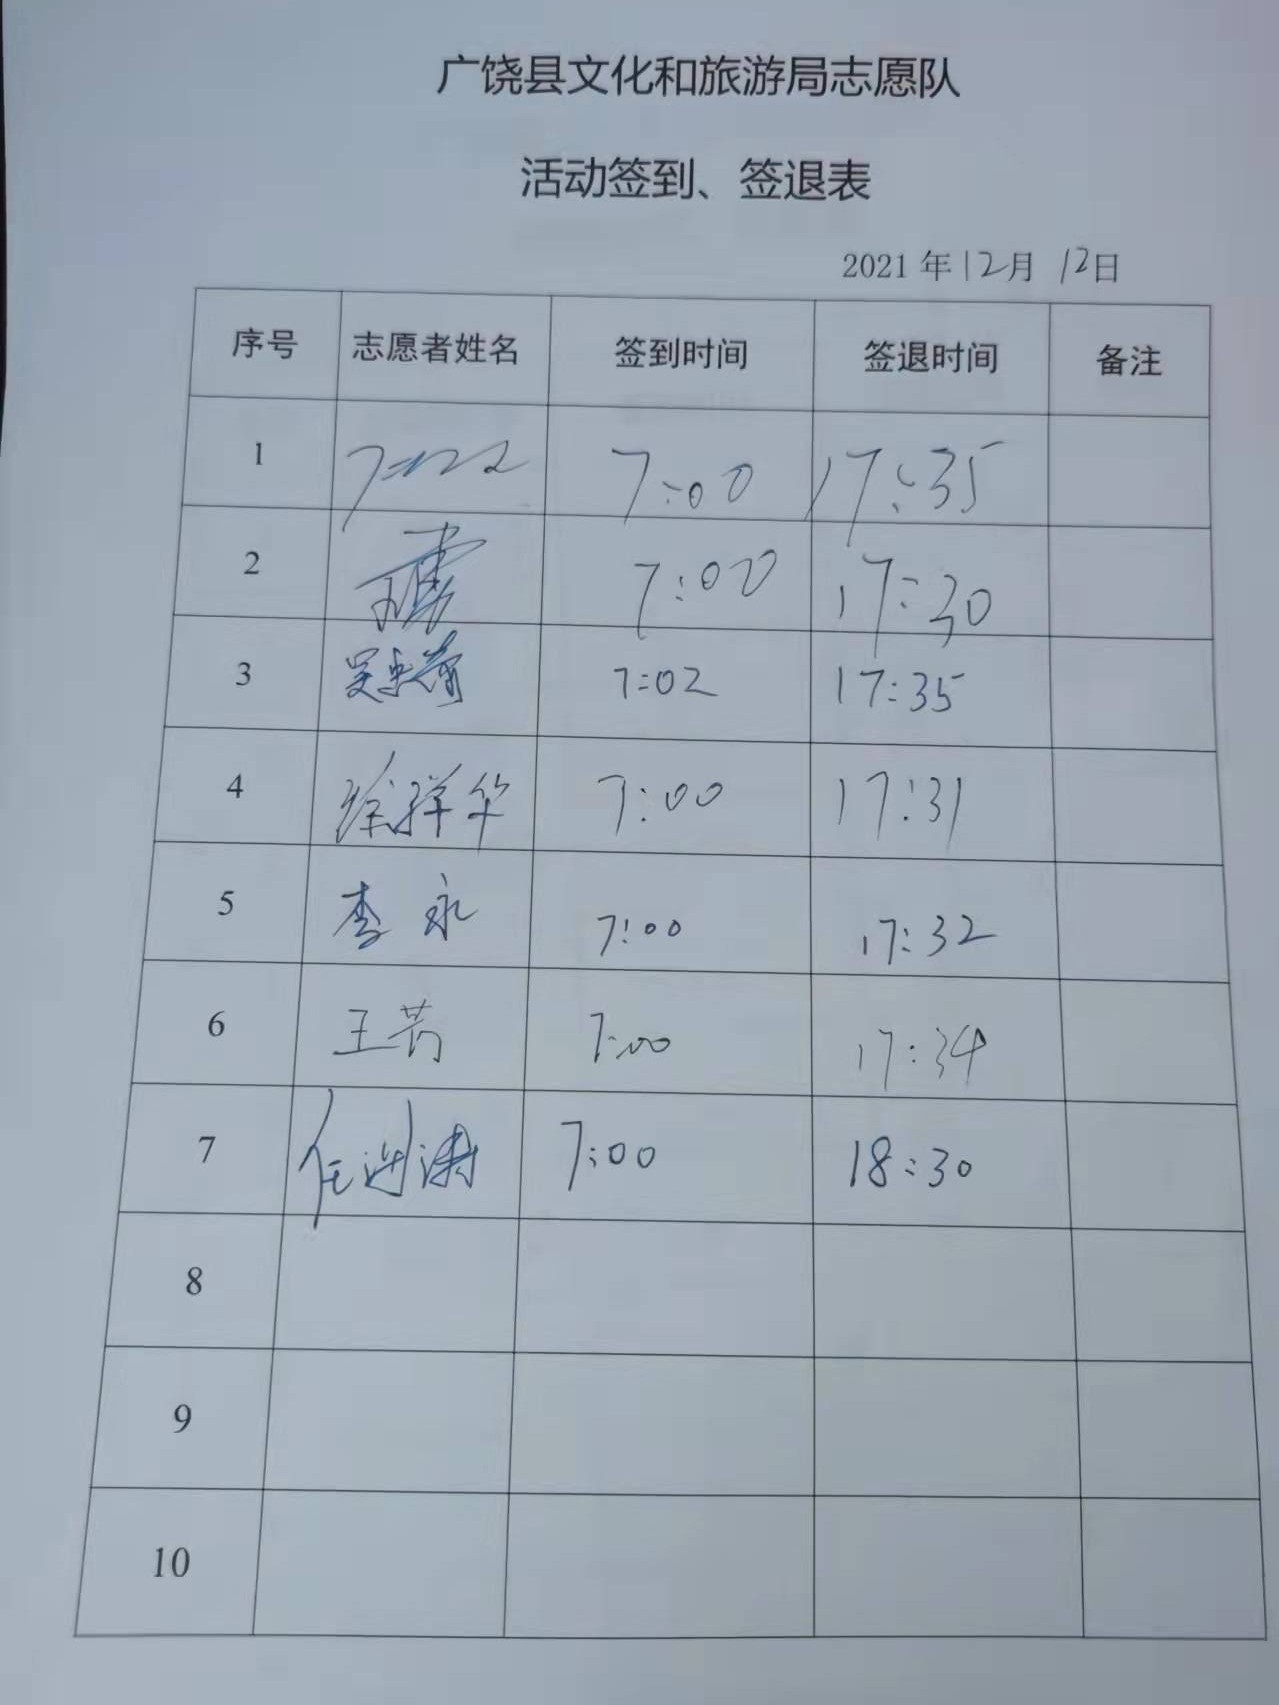 广饶县文化和旅游局志愿队
活动签到、签退表
2021年12月12日
序号 志愿者姓名 签到时间 签退时间 备注
1 7:00 17:35
2 7:00 17:30
3 7:02 17:35
4 徐祥华 7:00 17:31
5 李永 7:00 17:32
6 王芳 7:00 17:34
7 7:00 18:30
8
9
10